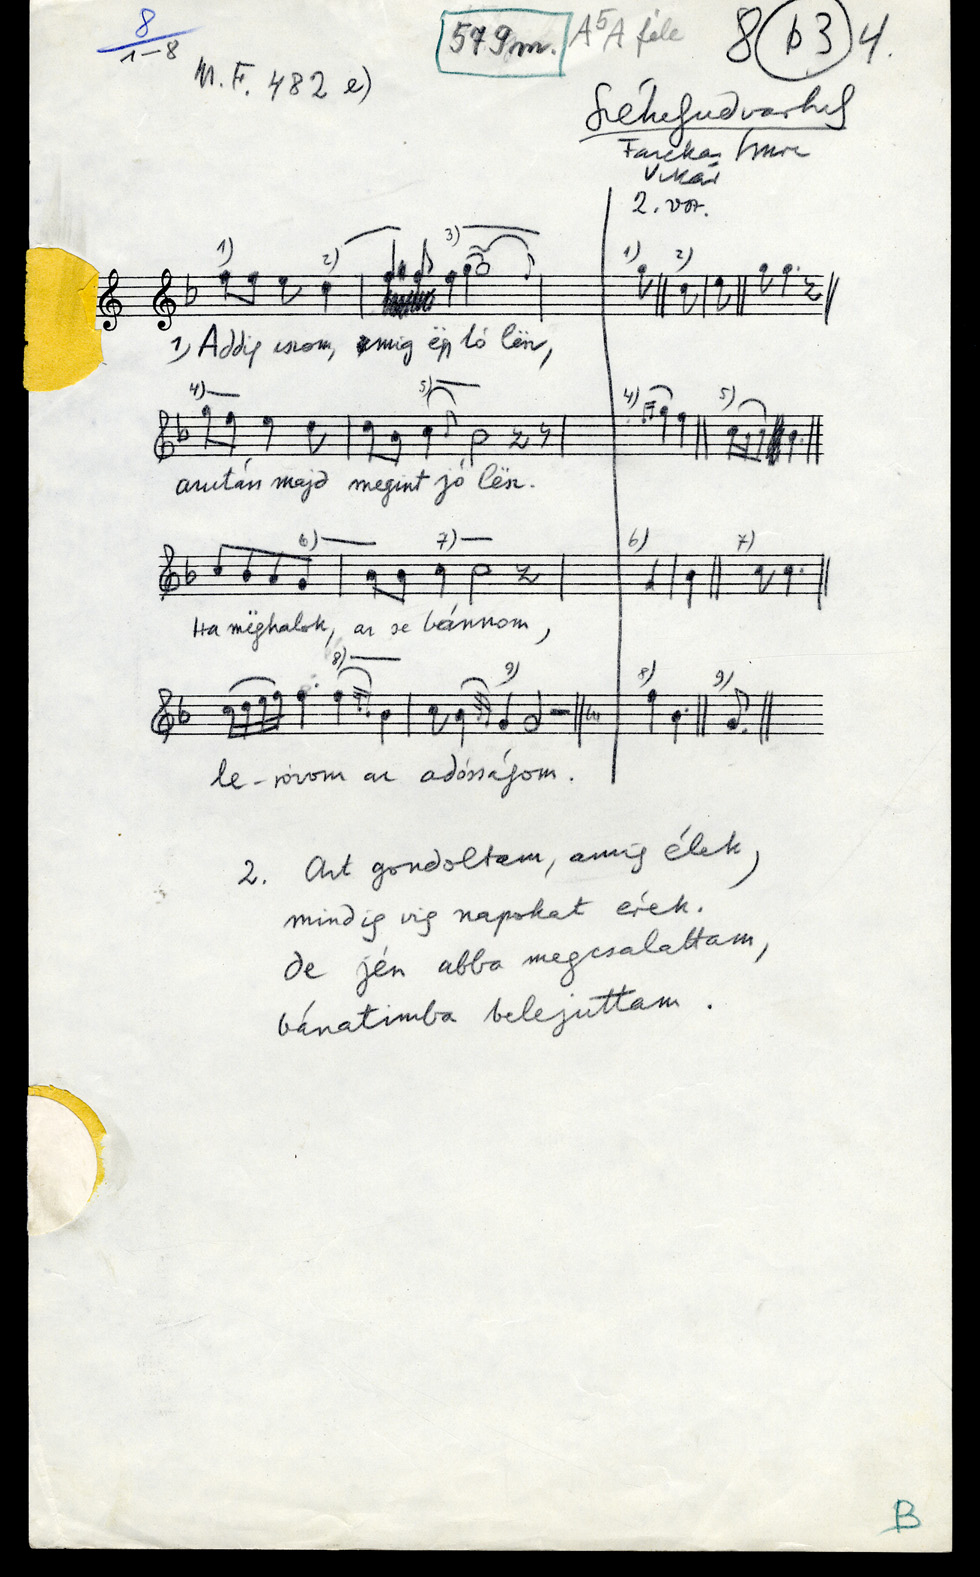 8
1-8
M.F. 482 e)
579 m.
A⁵A féle
8 b3 4.
Székelyudvarhely
Farkas Imre
Vikár
2. vsz.
1) 2) 3) 1) 2)
1) Addig iszom, amig ép ló lën,
4) 5) 4) 5)
azután majd megint jó lësz.
6) 7) 6) 7)
Ha mëghalok, az se bánnom,
8) 9) 8) 9)
le-róvom az adósságom.
2. Azt gondoltam, amig élek,
mindig vig napokat érek.
De jén abba megcsalattam,
bánatimba belejuttam.
B